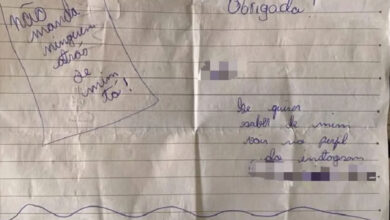 Obrigada!
não
manda
ninguém
atrás
de
mim
tá!
Se quiser
saber de mim
vai no perfil
do instagram